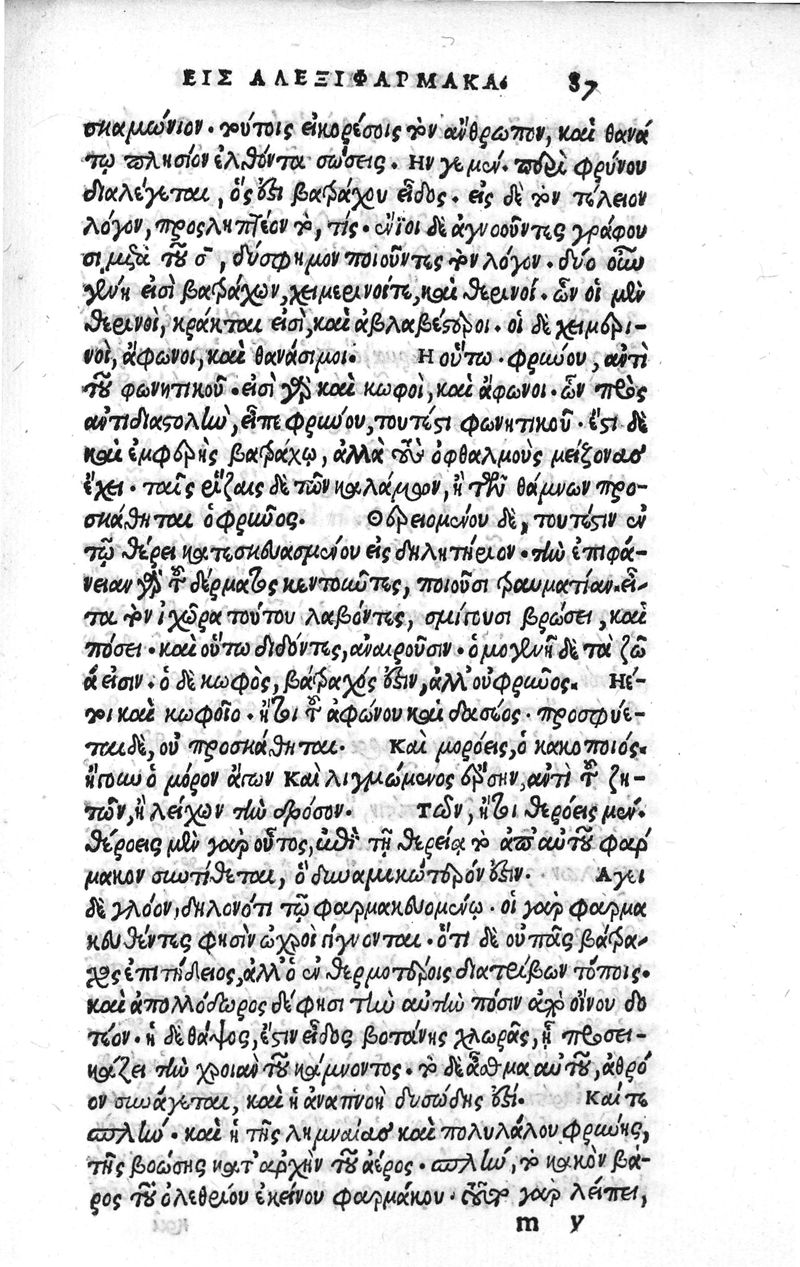 ΕΙΣ ΑΛΕΞΙΦΑΡΜΑΚΑ. 87
σκαμώνιον. τούτοις εἰκορέσοις τὸν ἄνθρωπον, καὶ θανά
τῳ πλησίον ἐλθόντα σώσεις. Ην γε μὲν. περὶ φρύνου
διαλέγεται, ὅς ὅξι βατράχου εἶδος. εἰς δὲ τὸν τέλειον
λόγον, προσληπτέον τὸ, τίς. ἔνϊοι δὲ ἀγνοοῦντες γράφου
σι μετὰ τοῦ σ, δύσφημον ποιοῦντες τὸν λόγον. δύο οὖν
γένη εἰσὶ βατράχων, χειμερινοίτε, καὶ θερινοί. ὧν οἱ μὲν
θερινοὶ, κράκται εἰσὶ, καὶ ἀβλαβέστεροι. οἱ δὲ χειμερι-
νοὶ, ἄφωνοι, καὶ θανάσιμοι. Η οὕτω. φρύνου, ἀντὶ
τοῦ φωνητικοῦ. εἰσὶ γὰρ καὶ κωφοὶ, καὶ ἄφωνοι. ὧν πρὸς
ἀντιδιαστολὴν, εἶπε φρύνου, τουτέστι φωνητικοῦ. ἔστι δὲ
καὶ ἐμφερὴς βατράχῳ, ἀλλὰ τοὺς ὀφθαλμοὺς μείζονας
ἔχει. ταῖς ῥίζαις δὲ τῶν καλάμων, ἢ τῶν θάμνων προ-
σκάθηται ὁ φρῦνος. Θερειομένου δὲ, τουτέστιν ἐν
τῷ θέρει κατεσκευασμένου εἰς δηλητήριον. τὴν ἐπιφά-
νειαν γὰρ τοῦ δέρματος κεντοῦντες, ποιοῦσι τραυματίαν. εἶ-
τα τὸν ἰχῶρα τούτου λαβόντες, σμίγουσι βρώσει, καὶ
πόσει. καὶ οὕτω διδόντες, ἀναιροῦσιν. ὁμογενῆ δὲ τὰ ζῶ
ά εἰσιν. ὁ δὲ κωφὸς, βάτραχός ἐστιν, ἀλλ' οὐ φρῦνος. Ηέ-
τι καὶ κωφοῖο. ἤτοι τοῦ ἀφώνου καὶ δασέος. προσφύε-
ται δὲ, οὐ προσκάθηται. Καὶ μορόεις, ὁ κακοποιός.
ἤγουν ὁ μόρον ἄγων Καὶ λιχμώμενος ἐέρσην, ἀντὶ τοῦ ζη-
τῶν, ἢ λείχων τὴν δρόσον. Τῶν, ἤτοι θερόεις μὲν.
θέροεις μὲν γὰρ οὗτος, ἐπεὶ τῇ θερείᾳ τὸ ἀπ' αὐτοῦ φάρ
μακον συντίθεται, ὃ δυναμικώτερόν ἐστιν. Αγει
δὲ χλόον, δηλονότι τῷ φαρμακευομένῳ. οἱ γὰρ φαρμα
κευθέντες φησὶν ὠχροὶ γίγνονται. ὅτι δὲ οὐ πᾶς βάτρα-
χος ἐπιτήδειος, ἀλλ' ὁ ἐν θερμοτέροις διατρίβων τόποις.
καὶ ἀπολλόδωρος δέ φησι τὴν αὐτὴν πόσιν διὰ οἴνου δο
τέον. ἡ δὲ θάψος, ἔστιν εἶδος βοτάνης χλωρᾶς, ᾗ προσει-
κάζει τὴν χροιὰν τοῦ κάμνοντος. τὸ δὲ ἆσθμα αὐτοῦ, ἀθρό
ον συνάγεται, καὶ ἡ ἀναπνοὴ δυσώδης ἐστί. Καί τε
πολὺ. καὶ ἡ τῆς λημναίας καὶ πολυλάλου φρύνης,
τῆς βοώσης κατ' ἀρχὴν τοῦ ἀέρος. πολὺ, τὸ κακὸν βά-
ρος τοῦ ὀλεθρίου ἐκείνου φαρμάκου. τοῦτο γὰρ λείπει,
m y